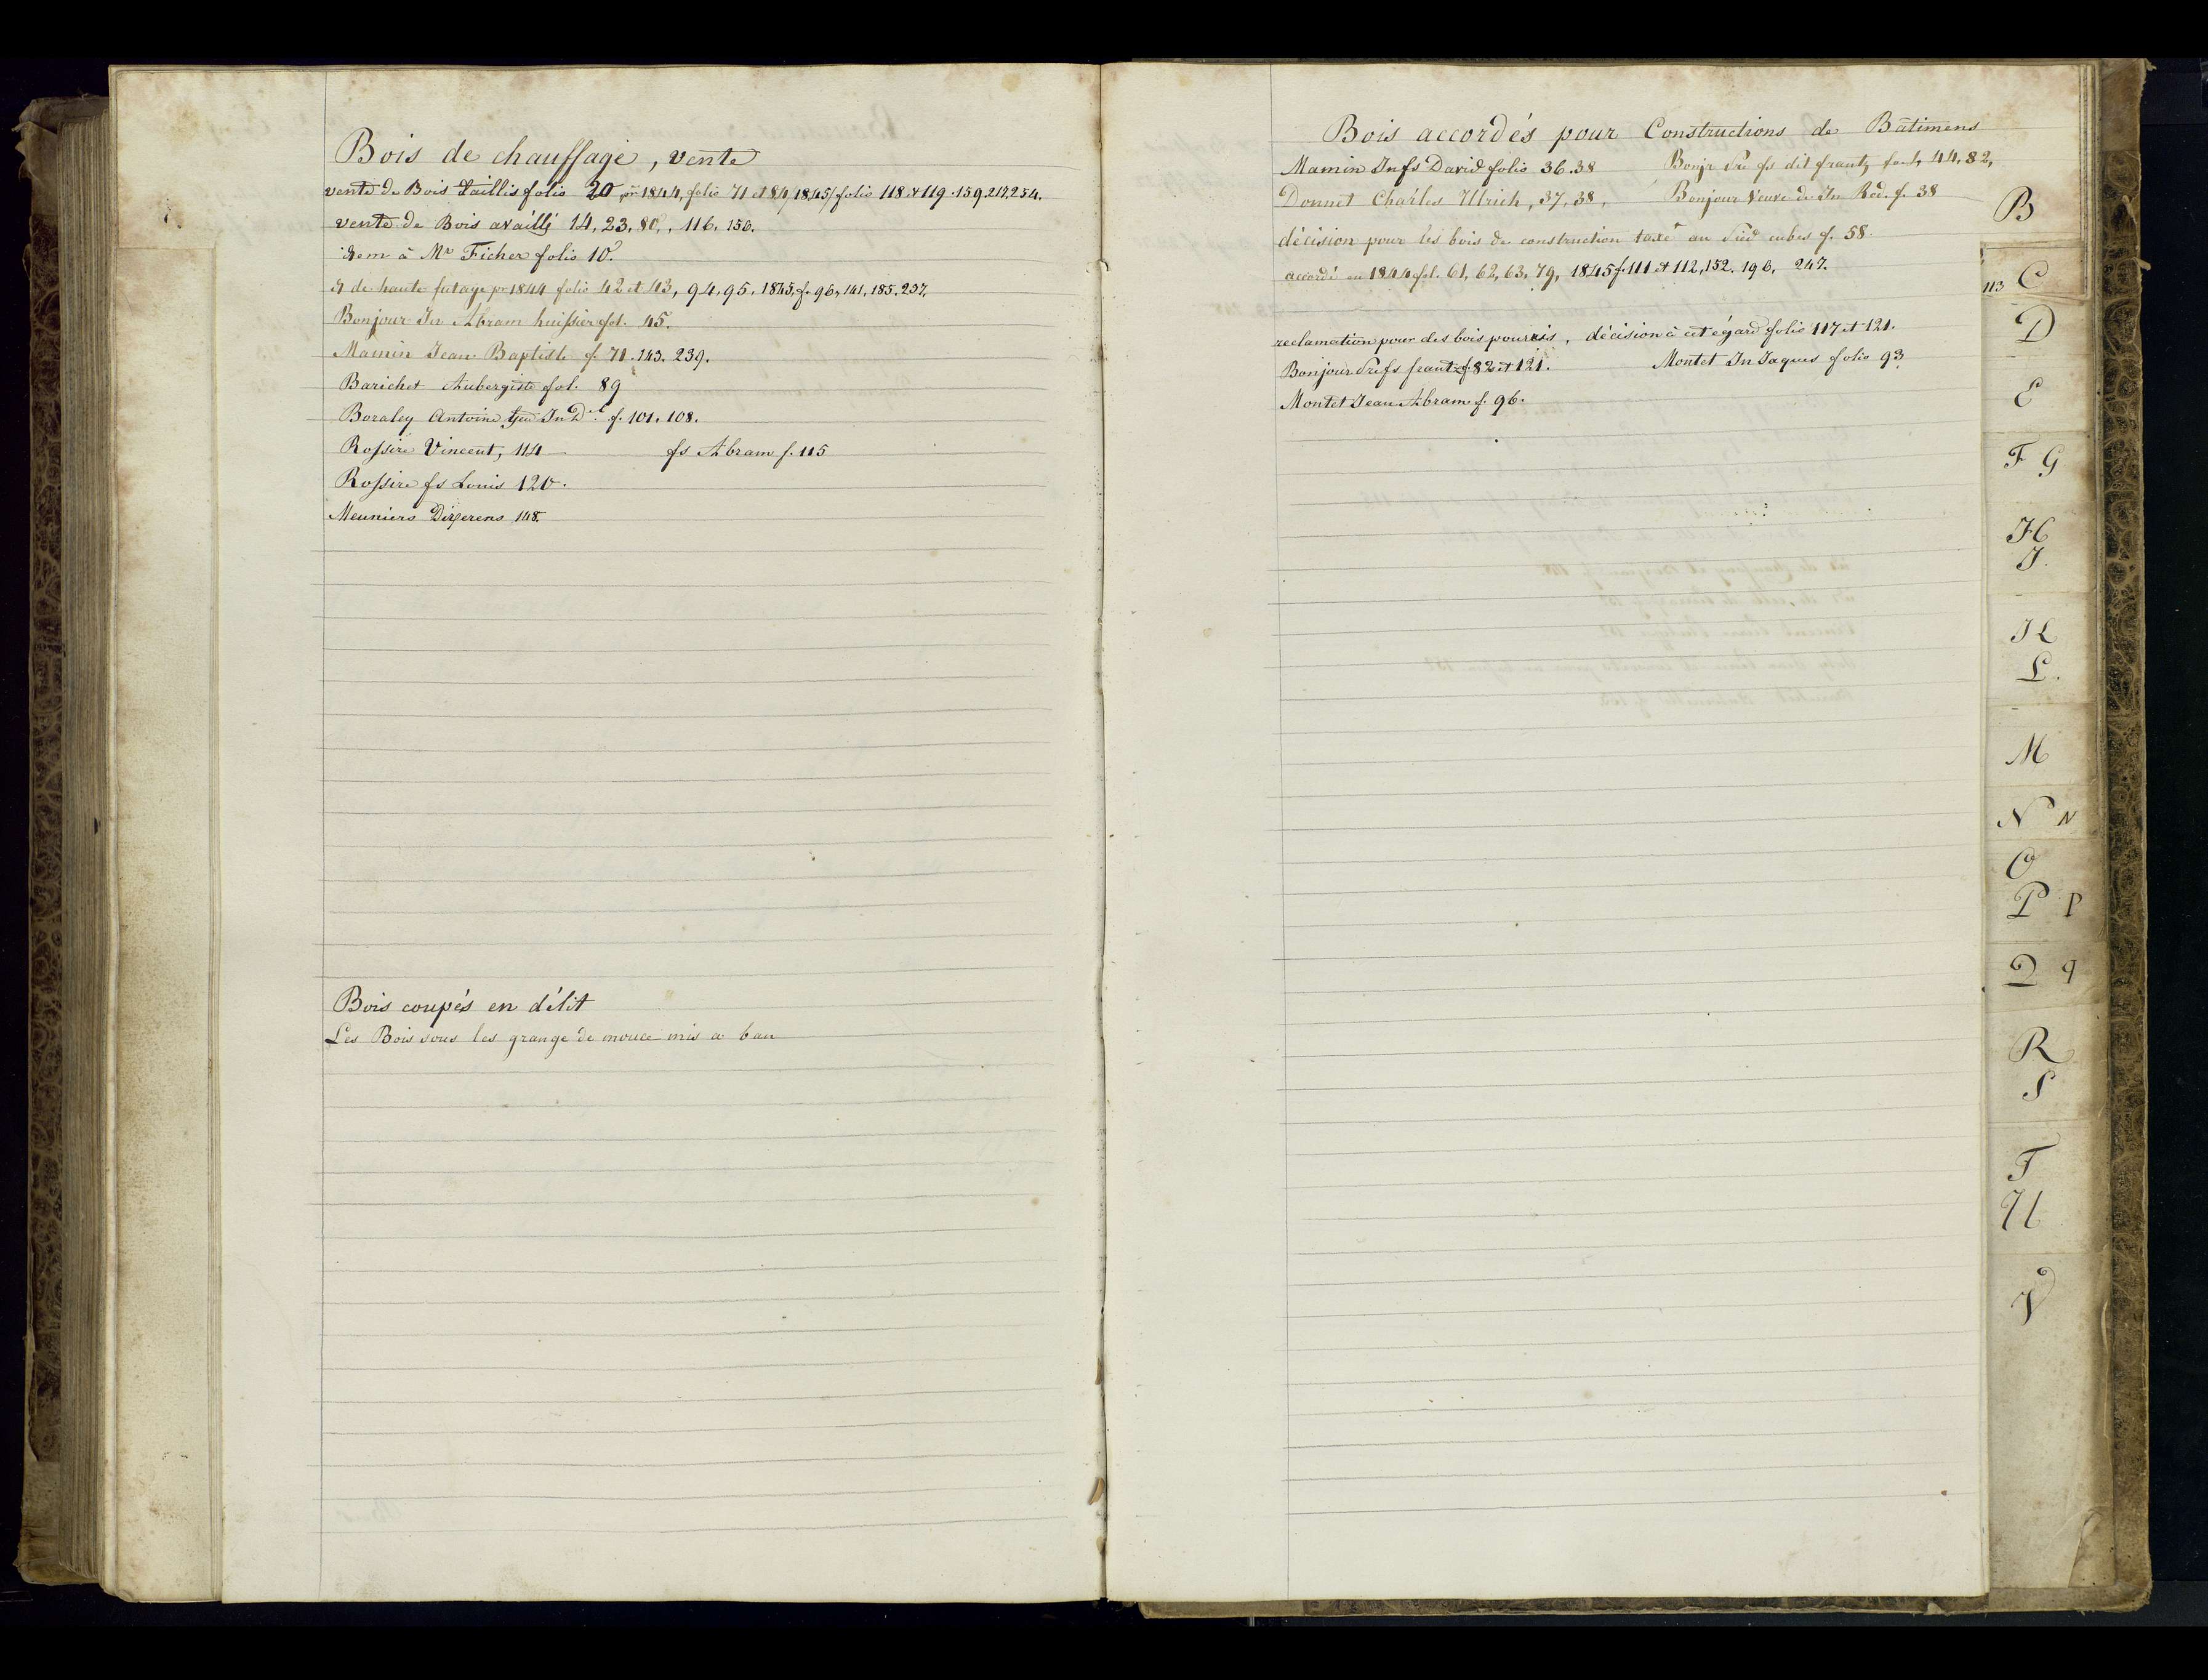 Bois de chauffage, vente
vente de Bois taillis folio 20 pr 1844, folio 71 et 84, 1845/ folio 118 et 119. 159. 217. 254.
vente de Bois availli 14, 23, 80, 116, 156.
idem à Mr Ficher folio 10.
d de haute futaye pr 1844 folio 42 et 43, 94, 95, 1845, f. 96, 141, 185. 237.
Bonjour Jn Abram huissier fol. 45.
Mamin Jean Baptiste f. 71. 143. 239.
Barichet Aubergiste fol. 89
Boraley Antoine feu Jn Dl f. 101. 108.
Rossire Vincent, 114 fs Abram f. 115
Rossire fs Louis 120.
Meuniers Diserens 148.
Bois coupés en délit
Les Bois sous les grange de mouce mis a ban
Bois accordés pour Constructions de Bâtimens
Mamin Jn fs David folio 36. 38 Bonjr fs dit frantz 44, 82,
Donnet Charles Ulrich, 37, 38, Bonjour Veuve de Jn Rod. f. 38
décision pour les bois de construction taxé au Pied cubes f. 58.
accordé en 1844 fol. 61, 62, 63, 79, 1845 f. 111 et 112, 152. 196. 247.
reclamation pour des bois pourris, décision à cet égard folio 117 et 121.
Bonjour fs frantz f. 82 et 121. Montet Jn Jaques folio 93
Montet Jean Abram f. 96.
B
113 C
D
E
F G
H
J.
K
L.
M
N N
O
P P
Q q
R
S
T
U
V